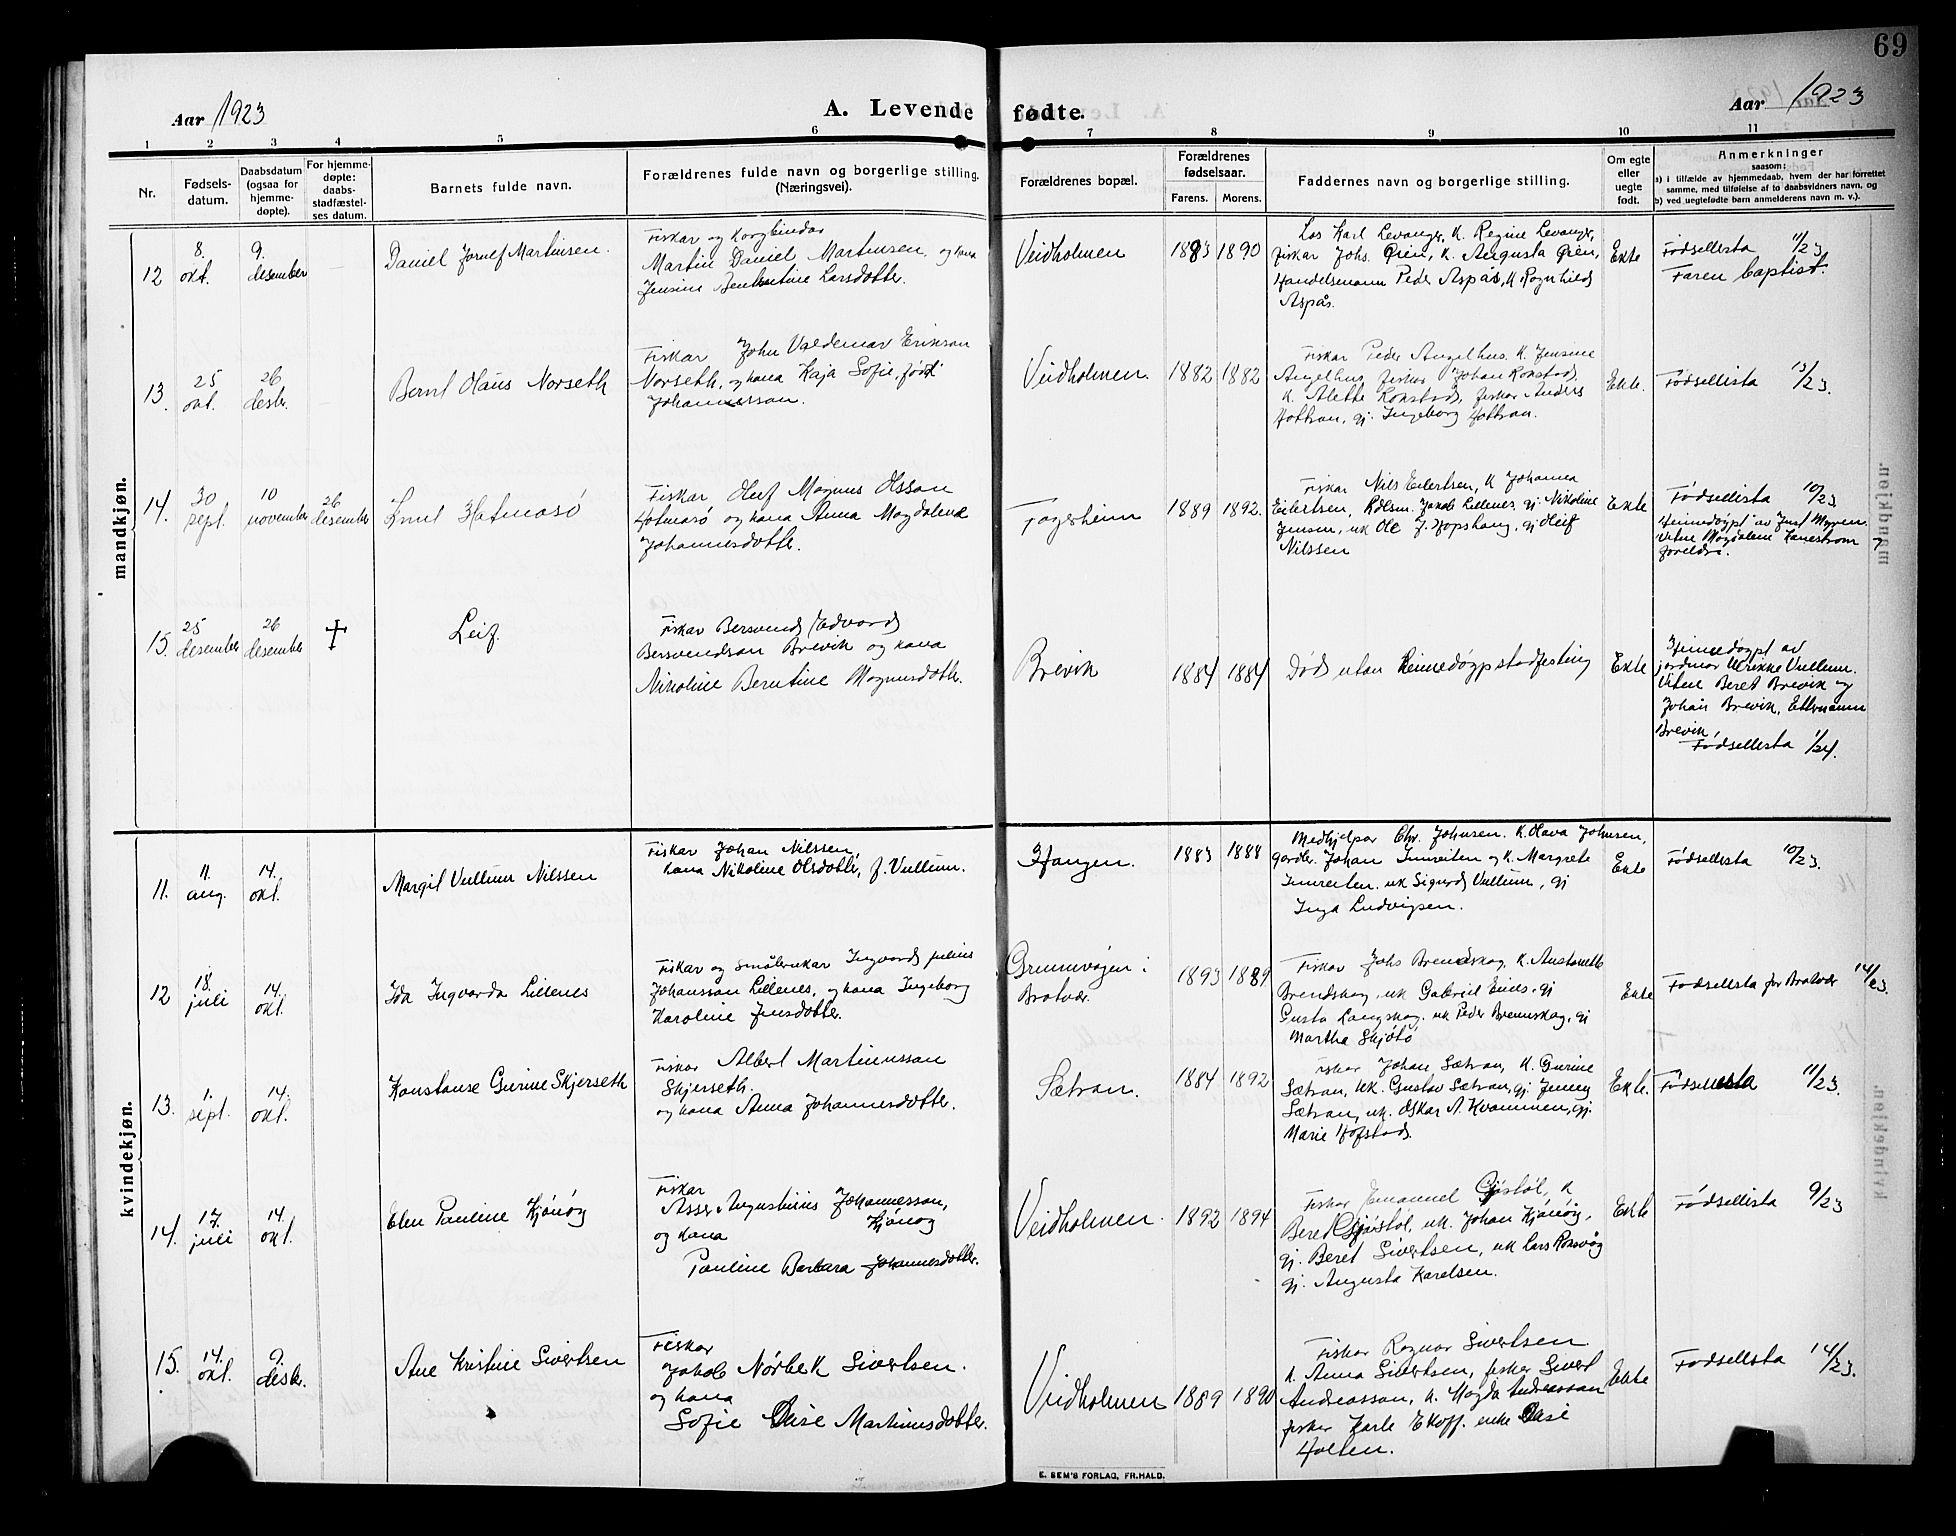 69
Aar 1923
A. Levende fødte.
Aar 1923
1 2 3 4 5 6 7 8 9 10 11
Nr.
Fødsels-
datum.
Daabsdatum
(ogsaa for
hjemme-
døpte).
For hjemme-
døpte:
daabs-
stadfæstel-
ses datum.
Barnets fulde navn.
Forældrenes fulde navn og borgerlige stilling.
(Næringsvei).
Forældrenes bopæl.
Forældrenes
fødselsaar.
Farens. Morens.
Faddernes navn og borgerlige stilling.
Om egte
eller
uegte
født.
Anmerkninger
saasom:
a) i tilfælde av hjemmedaab, hvem der har forrettet
samme, med tilføielse af to daabsvidners navn, og
b) ved uegtefødte barn anmelderens navn m. v.).
mandkjøn.
12
8.
okt.
9.
desember
Daniel Martinsen.
Fiskar og korgbindar
Martin Daniel Martinsen, og kona
Jensine Larsdotter.
Veidholmen
1883 1890
Los Karl Levanger, K. Regine Levanger,
fiskar Johs. Øien, K. Augusta Øien,
Handelsmann Peder Aspås, K Ragnhild
Aspås.
Ekte
Fødsellista 11/23.
Faren baptist.
13.
25
okt.
26
desbr.
Bernt Olaus Norseth
Fiskar John Valdemar Erikson
Norseth, og kona Kaja Sofie, født
Johannesson.
Veidholmen.
1882 1882
Fiskar Peder Angelhus. K. Jensine
Angelhus, fiskar Johan Rokstad,
K. Alette Rokstad, fiskar Anders
Hottran, gj. Ingeborg Hottran.
Ekte.
Fødsellista 13/23.
14.
30
sept.
10
november
26
desember
Knut Hatmosø
Fiskar Oluf Magnus Olsson
Hatmosø og kona Anna Magdalena
Johannesdotter.
Fagerheim
1889 1892.
Fiskar Nils Eilertsen, K Johanna
Eilertsen, Jakob Lillenes, gj Nikoline
Jensen, uk Ole J. Hopshaug, gj
Nilssen
Ekte
Fødsellista 10/23
Heimedøypt av
Vitne Magdalene og
foreldri.
15.
25
desember
26
desember
†
Leif.
Fiskar Bersvend Edvard
Bersvendson Brevik og kona
Nikoline Berntine Magnusdotter.
Brevik
1884 1884
Død utan heimedøypstadfesting
Ekte
Heimedøypt av
jordmor Ulrikke Vullum.
Vitne Beret Brevik og
Johan Brevik,
Brevik,
Fødsellista 1/24.
kvindekjøn.
11.
11.
aug.
14.
okt.
Margit Vullum Nilssen
Fiskar Johan Nilssen,
kona Nikoline Olsdotter, f. Vullum.
Haugen.
1883 1888
Medhjelpar Chr. Johnsen. K. Olava Johnsen,
gardbr. Johan Innreiten og K. Margrete
Innreiten. uk Sigurd Vullum, gj
Inga Ludvigsen.
Ekte
Fødsellista 10/23.
12
18.
juli
14.
okt.
Ida Ingvarda Lillenes
Fiskar og småbrukar Ingvard Julius
Johansson Lillenes, og kona Ingeborg
Karoline Jensdotter.
Grunnvågen i
Bratvær.
1893 1889
Fiskar Johs Brendskag, K. Anstinette
Brendskag, uk Gabriel Enes, gj
Gusta Langskag. uk Peder Brennskag, gj
Martha Skjøtø
Ekte
Fødsellista for Bratvær 14/23.
13.
1.
sept.
14.
okt.
Konstanse Gurine Skjerseth
Fiskar Albert Martinusson
Skjerseth.
og kona Anna Johannesdotter.
Sætran.
1884 1892
Fiskar Johan Sætran, K. Gurine
Sætran, uk. Gustav Sætran, gj. Jenny
Sætran, uk. Oskar A. Kvammen, gj.
Marie Hofstad.
Ekte.
Fødsellista 11/23.
14.
17.
juli
14.
okt.
Elen Pauline Kjønøy
Fiskar
Asser Augustinius Johannesson,
Kjønøy
og kona
Pauline Barbara Johannesdotter.
Veidholmen.
1892 1894
Fiskar Emanuel Gjøstøl, K
Beret Gjøstøl, uk. Johan Kjønøy,
gj. Beret Sivertsen, uk Lars Roksvåg
gj. Augusta Karelsen.
Ekte
Fødsellista 9/23
15.
14.
okt.
9.
desbr.
Ane Kristine Sivertsen
Fiskar
Jakob Nørbek Sivertsen.
og kona
Sofie Olise Martinusdotter.
Veidholmen
1889 1890
Fiskar Ragnar Sivertsen
K. Anna Sivertsen, fiskar Sivert
Andreasson, K. Magda Andreasson
fiskar Karle Ekoff. enke Olise
Holten.
Ekte
Fødsellista 14/23.
E. SEM'S FORLAG, FR.HALD.